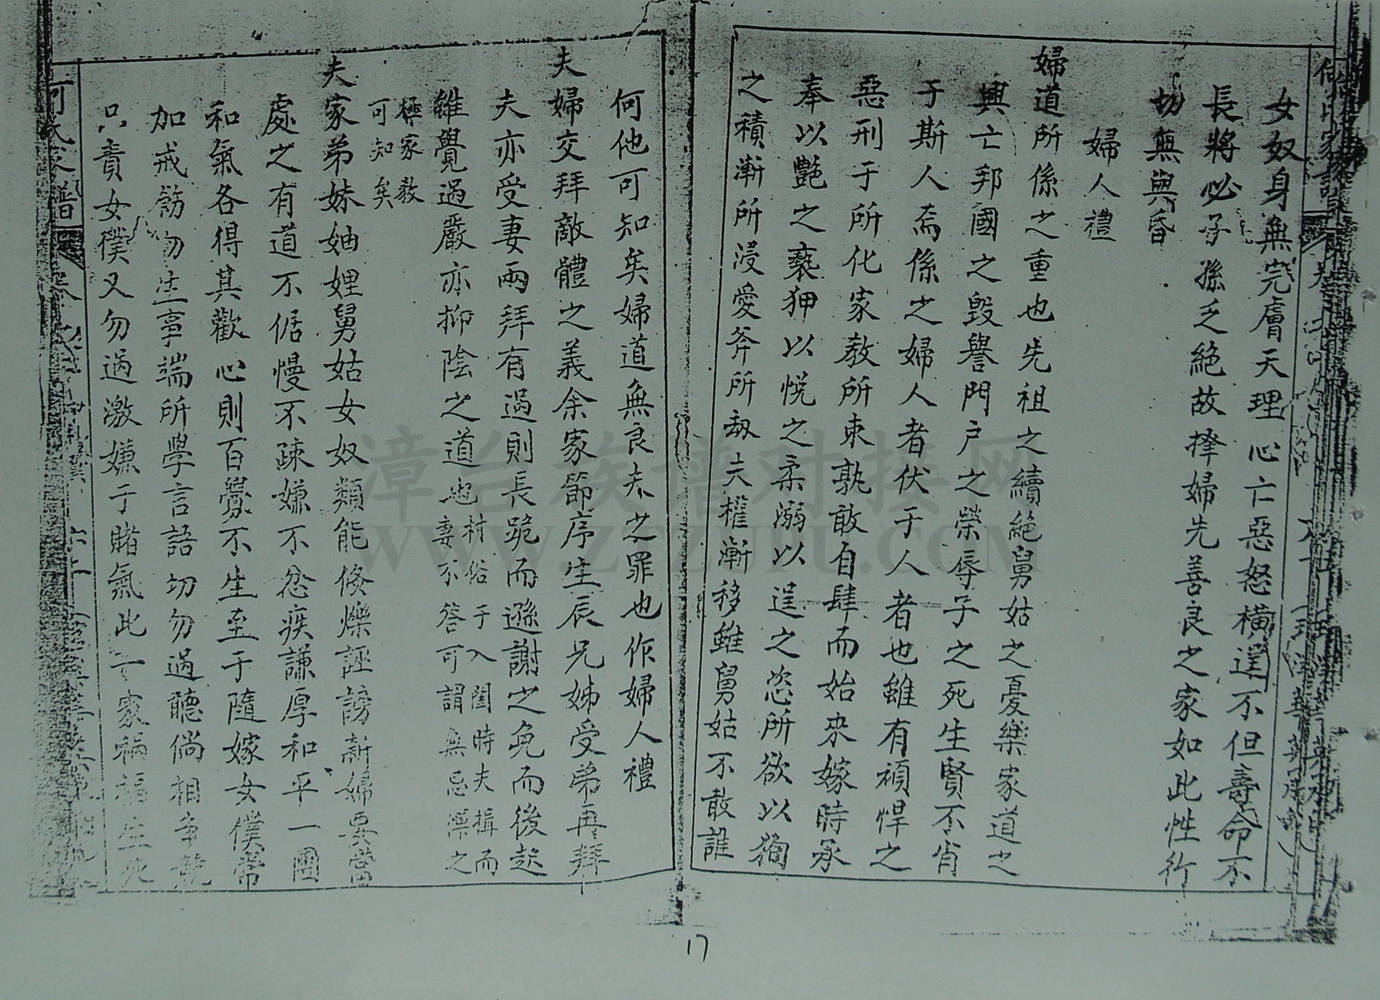 何氏家譜
女奴身無完膚天理心亡惡怒橫逞不但壽命不
長將必子孫乏絕故擇婦先善良之家如此性行
切無與昏
婦人禮
婦道所係之重也先祖之續絕舅姑之憂樂家道之
興亡邦國之毀譽門戶之榮辱子之死生賢不肖
于斯人焉係之婦人者伏于人者也雖有頑悍之
惡刑于所化家教所束孰敢自肆而始來嫁時承
奉以艷之褻狎以悅之柔溺以逞之恣所欲以徇
之積漸所浸愛斧所劫夫權漸移雖舅姑不敢誰
何他可知矣婦道無良夫之罪也作婦人禮
夫婦交拜敵體之義余家節序生辰兄姊受弟再拜
夫亦受妻兩拜有過則長跪而遜謝之免而後起
雖覺過嚴亦抑陰之道也
村俗子入閨時夫揖而
妻不答可謂無忌憚之
極家教
可知矣
夫家弟妹妯娌舅姑女奴類能倏爍誣謗新婦要當
處之有道不倨慢不疎嫌不忿疾謙厚和平一團
和氣各得其歡心則百釁不生至于隨嫁女僕常
加戒飭勿生事端所學言語切勿過聽倘相爭競
只責女僕又勿過激嫌于賭氣此一家禍福生死
何氏家譜
17
漳台族譜对接网
WWW.ZTZUPU.COM